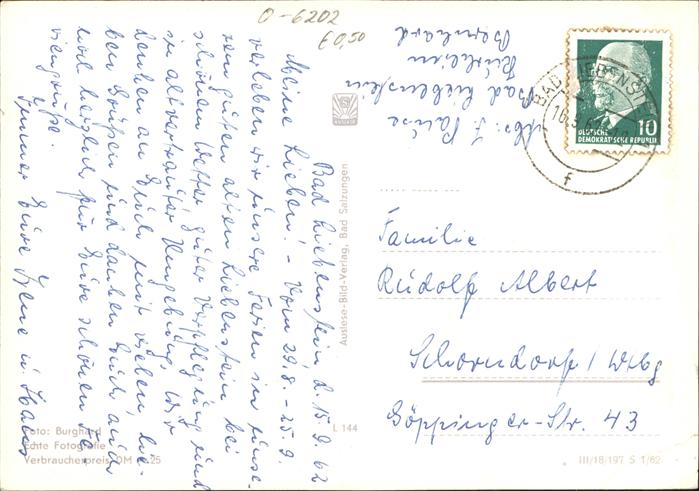 O-6202
€0,50
Bad Liebenstein, d. 15.9.62
Meine Lieben! - Vom 29.8.-25.9.
verleben wir unsere Ferien in unse-
rem guten alten Liebenstein bei
schönem Wetter guter Verpflegung und
in altvertrauter Umgebung. Wir
denken an Euch mit vielen, lie-
ben Grüßen und danken Euch auch
noch herzlich für Eure schönen Fe-
riengrüße.
Immer Eure Irene u. Hans
Abs: J. Pause
Bad Liebenstein
Bernhard
BAD LIEBENSTEIN
16.9.62
f
10
DEUTSCHE
DEMOKRATISCHE REPUBLIK
Familie
Rudolf Albert
Schorndorf / Wttbg
Göppinger-Str. 43
Auslese-Bild-Verlag, Bad Salzungen
L 144
Foto: Burghard
Echte Fotografie
Verbraucherpreis DM 0,25
III/18/197 S 1/62